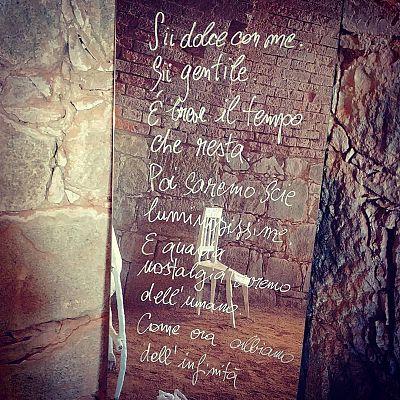 Sii dolce con me.
Sii gentile.
È breve il tempo
che resta
Poi saremo scie
luminosissime.
E quanta
nostalgia avremo
dell'umano
Come ora abbiamo
dell'infinità